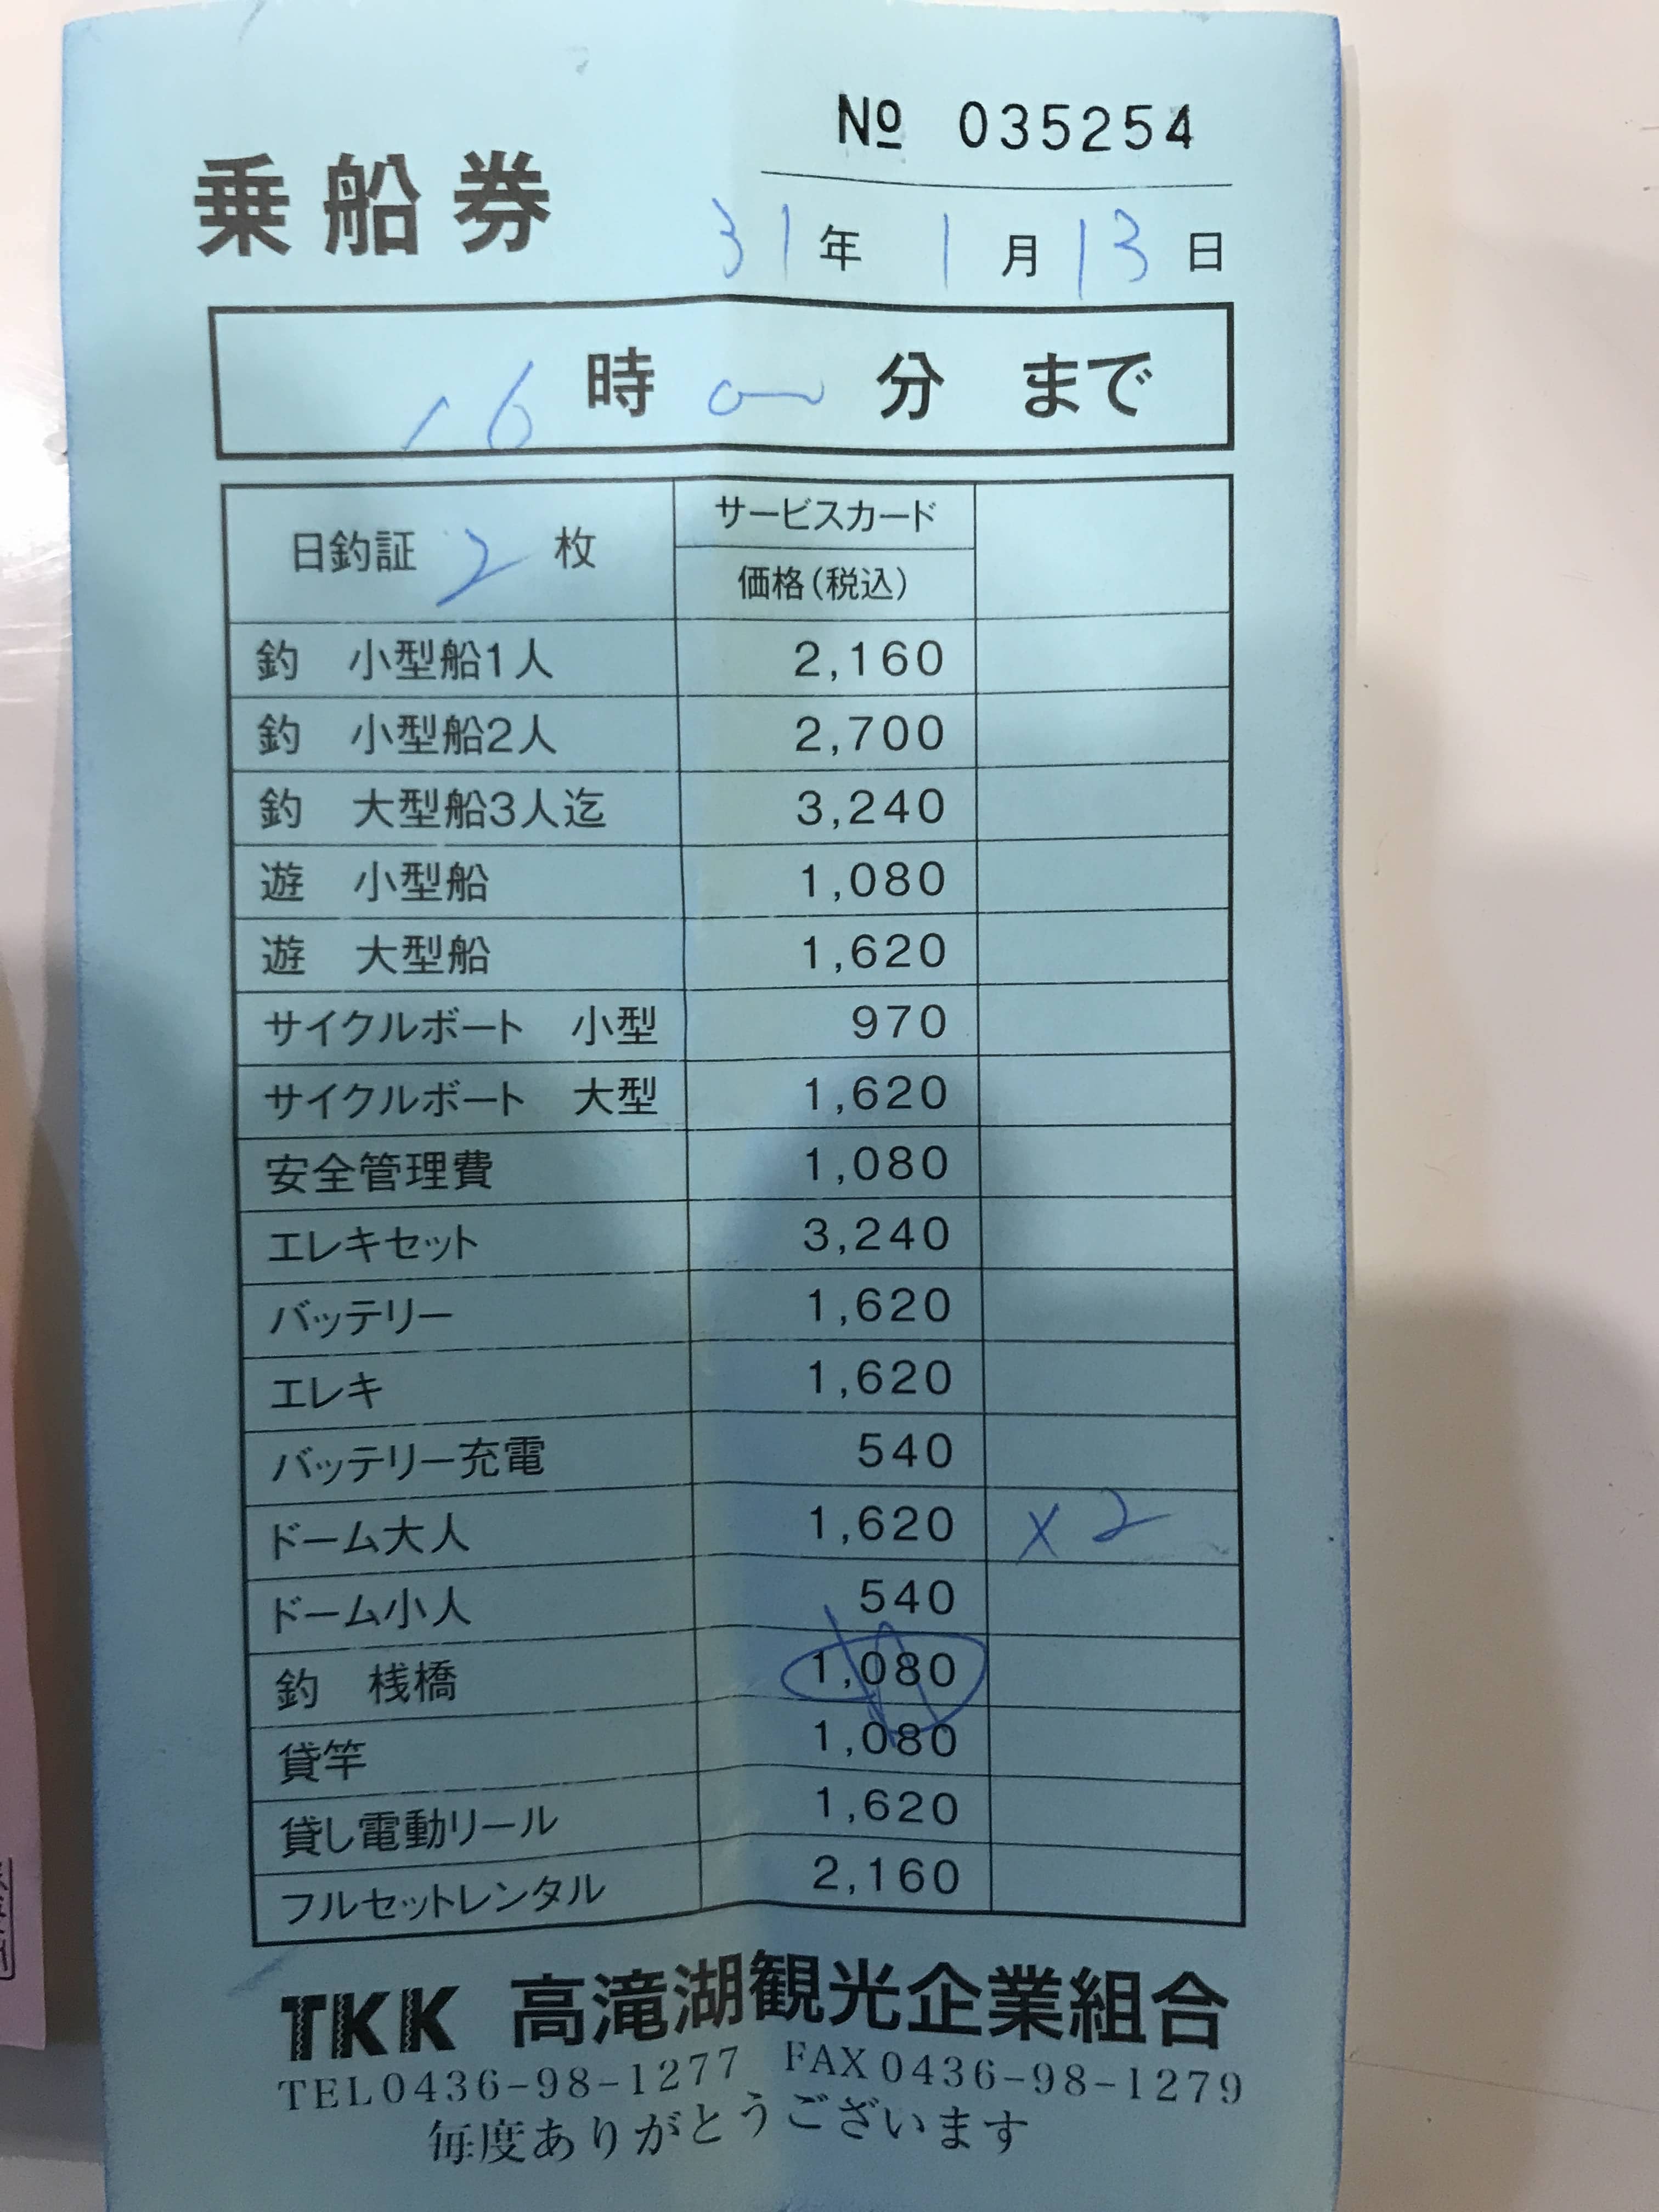 № 035254
乗船券
31年 1月 13日
16時 0分 まで
日釣証 2 枚
サービスカード
価格(税込)
釣 小型船1人 2,160
釣 小型船2人 2,700
釣 大型船3人迄 3,240
遊 小型船 1,080
遊 大型船 1,620
サイクルボート 小型 970
サイクルボート 大型 1,620
安全管理費 1,080
エレキセット 3,240
バッテリー 1,620
エレキ 1,620
バッテリー充電 540
ドーム大人 1,620 ×2
ドーム小人 540
釣 桟橋 1,080
貸竿 1,080
貸し電動リール 1,620
フルセットレンタル 2,160
TKK 高滝湖観光企業組合
TEL0436-98-1277 FAX0436-98-1279
毎度ありがとうございます